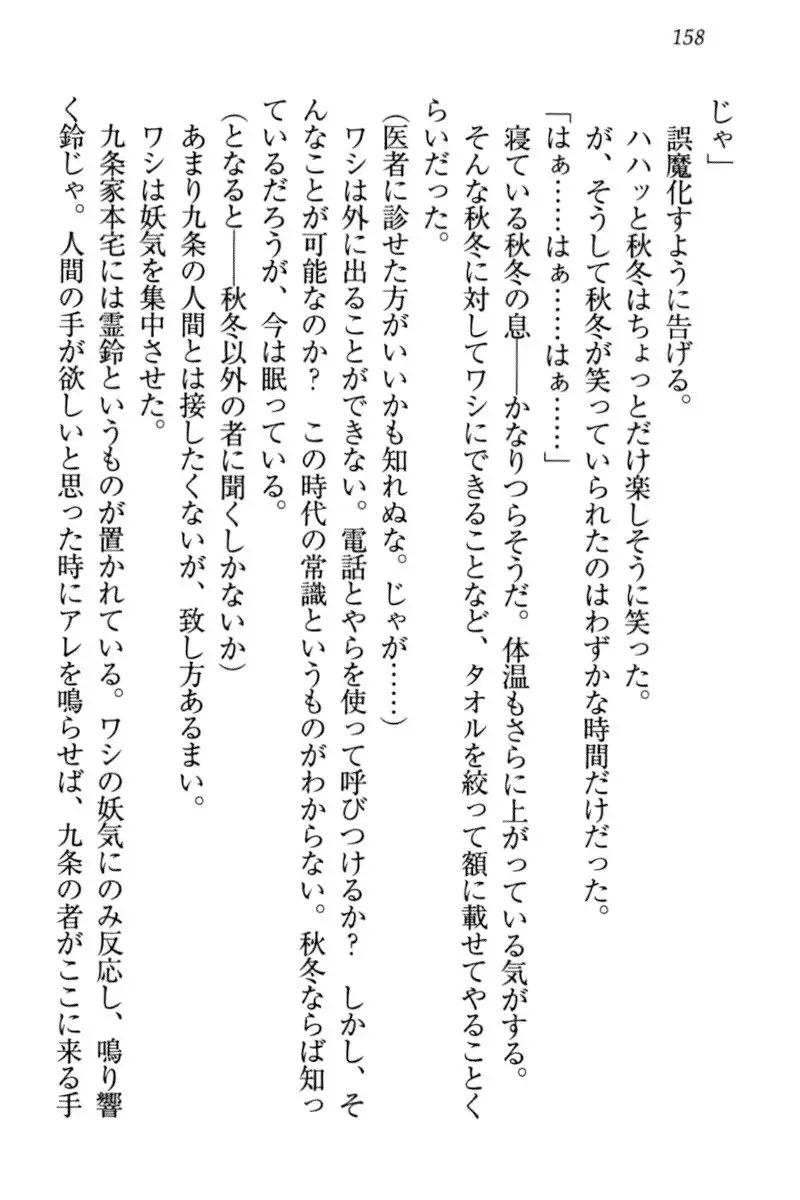 158
じゃ」
　誤魔化すように告げる。
　ハハッと秋冬はちょっとだけ楽しそうに笑った。
　が、そうして秋冬が笑っていられたのはわずかな時間だけだった。
「はぁ……はぁ……はぁ……」
　寝ている秋冬の息――かなりつらそうだ。体温もさらに上がっている気がする。
　そんな秋冬に対してワシにできることなど、タオルを絞って額に載せてやることく
らいだった。
（医者に診せた方がいいかも知れぬな。じゃが……）
　ワシは外に出ることができない。電話とやらを使って呼びつけるか？　しかし、そ
んなことが可能なのか？　この時代の常識というものがわからない。秋冬ならば知っ
ているだろうが、今は眠っている。
（となると――秋冬以外の者に聞くしかないか）
　あまり九条の人間とは接したくないが、致し方あるまい。
　ワシは妖気を集中させた。
　九条家本宅には霊鈴というものが置かれている。ワシの妖気にのみ反応し、鳴り響
く鈴じゃ。人間の手が欲しいと思った時にアレを鳴らせば、九条の者がここに来る手